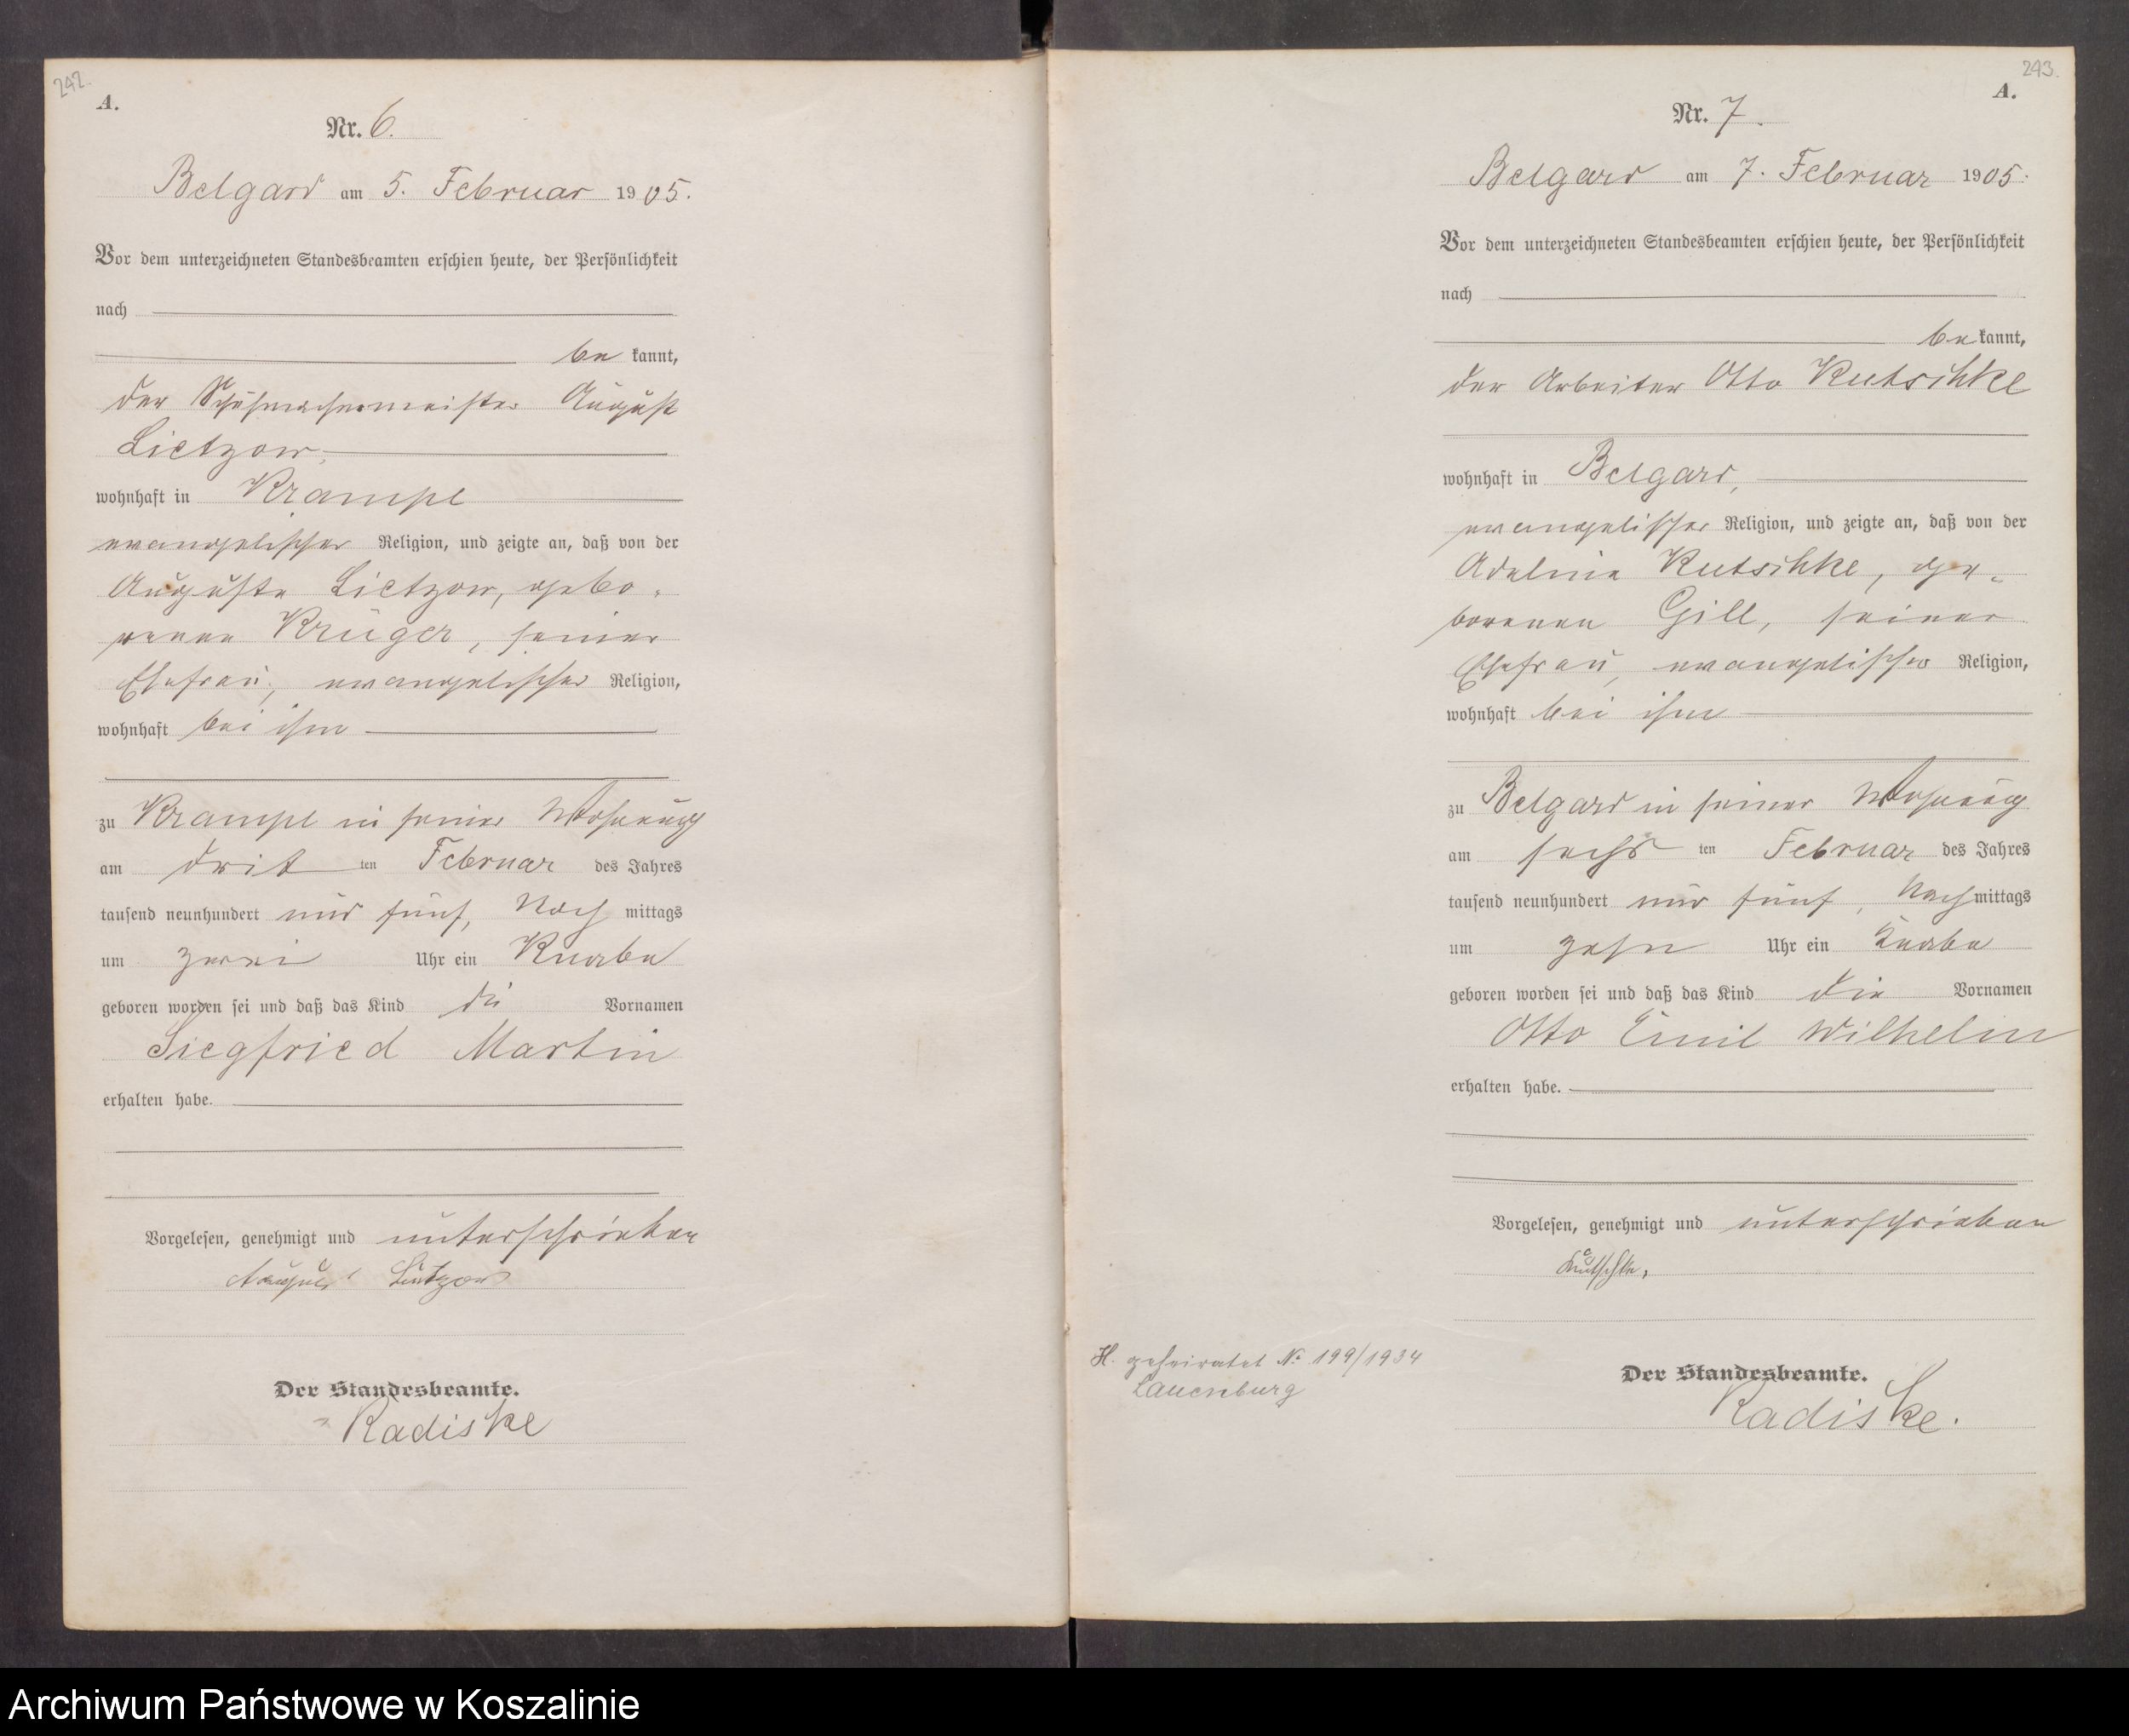 242.
A.
Nr. 6.
Belgard am 5. Februar 1905.
Vor dem unterzeichneten Standesbeamten erschien heute, der Persönlichkeit
nach
be kannt,
der Schuhmachermeister August
Lietzow,
wohnhaft in Krampe
evangelischer Religion, und zeigte an, daß von der
Auguste Lietzow, gebo-
renen Krüger, seiner
Ehefrau, evangelischer Religion,
wohnhaft bei ihm
zu Krampe in seiner Wohnung
am drit ten Februar des Jahres
tausend neunhundert und fünf, Nach mittags
um zwei Uhr ein Knabe
geboren worden sei und daß das Kind die Vornamen
Siegfried Martin
erhalten habe.
Vorgelesen, genehmigt und unterschrieben
August Lietzow
Der Standesbeamte.
Radiske
243.
A.
Nr. 7.
Belgard am 7. Februar 1905.
Vor dem unterzeichneten Standesbeamten erschien heute, der Persönlichkeit
nach
be kannt,
der Arbeiter Otto Kutschke
wohnhaft in Belgard,
evangelischer Religion, und zeigte an, daß von der
Adeline Kutschke, ge-
borenen Gill, seiner
Ehefrau, evangelischer Religion,
wohnhaft bei ihm
zu Belgard in seiner Wohnung
am sechs ten Februar des Jahres
tausend neunhundert und fünf, Nach mittags
um zehn Uhr ein Knabe
geboren worden sei und daß das Kind die Vornamen
Otto Emil Wilhelm
erhalten habe.
Vorgelesen, genehmigt und unterschrieben
Kutschke,
H. geheiratet No 199/1934
Lauenburg
Der Standesbeamte.
Radiske.
Archiwum Państwowe w Koszalinie